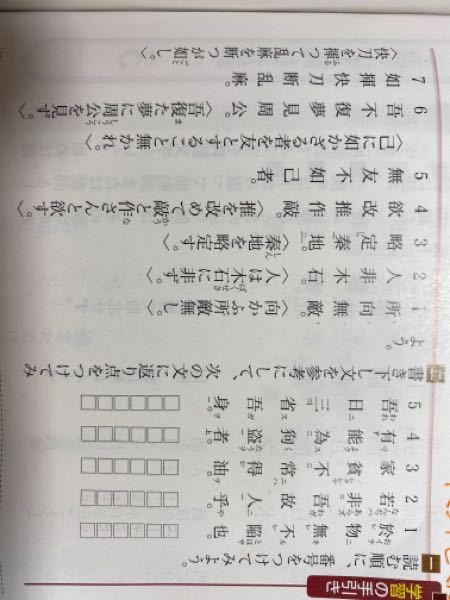 学習の手引き
一 読む順に、番号をつけてみよう。
1 於物無不陥也。
2 若非吾故人乎。
3 家貧不常得油。
4 有能為狗盗者。
5 吾日三省吾身。
書き下し文を参考にして、次の文に返り点をつけてみよう。
1 所向無敵。〈向かふ所敵無し〉
2 人非木石。〈人は木石に非ず〉。
3 略定秦地。〈秦地を略定す〉。
4 欲改推作敲。〈推を改めて敲と作さんと欲す〉。
5 無友不如己者。
〈己に如かざる者を友とすること無かれ〉。
6 吾不復夢見周公。〈吾復た夢に周公を見ず〉。
7 如揮快刀断乱麻。
〈快刀を揮つて乱麻を断つが如し〉。